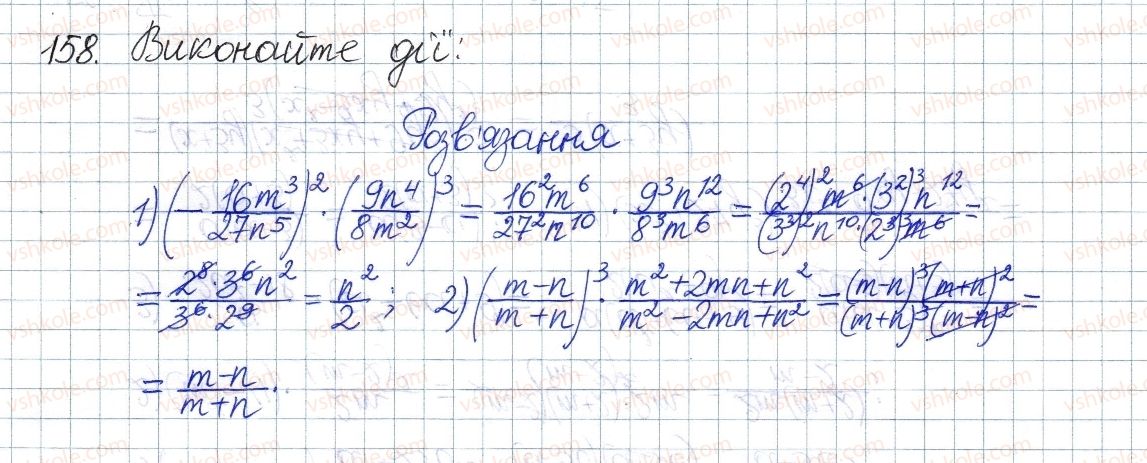 158. Виконайте дії:
Розв'язання
1) (-16m³/27n⁵)² · (9n⁴/8m²)³ = 16²m⁶/27²n¹⁰ · 9³n¹²/8³m⁶ = (2⁴)²m⁶·(3²)³n¹²/(3³)²n¹⁰·(2³)³m⁶ =
= 2⁸·3⁶n²/3⁶·2⁹ = n²/2 ; 2) (m-n/m+n)³ · m²+2mn+n²/m²-2mn+n² = (m-n)³(m+n)²/(m+n)³(m-n)² =
= m-n/m+n.